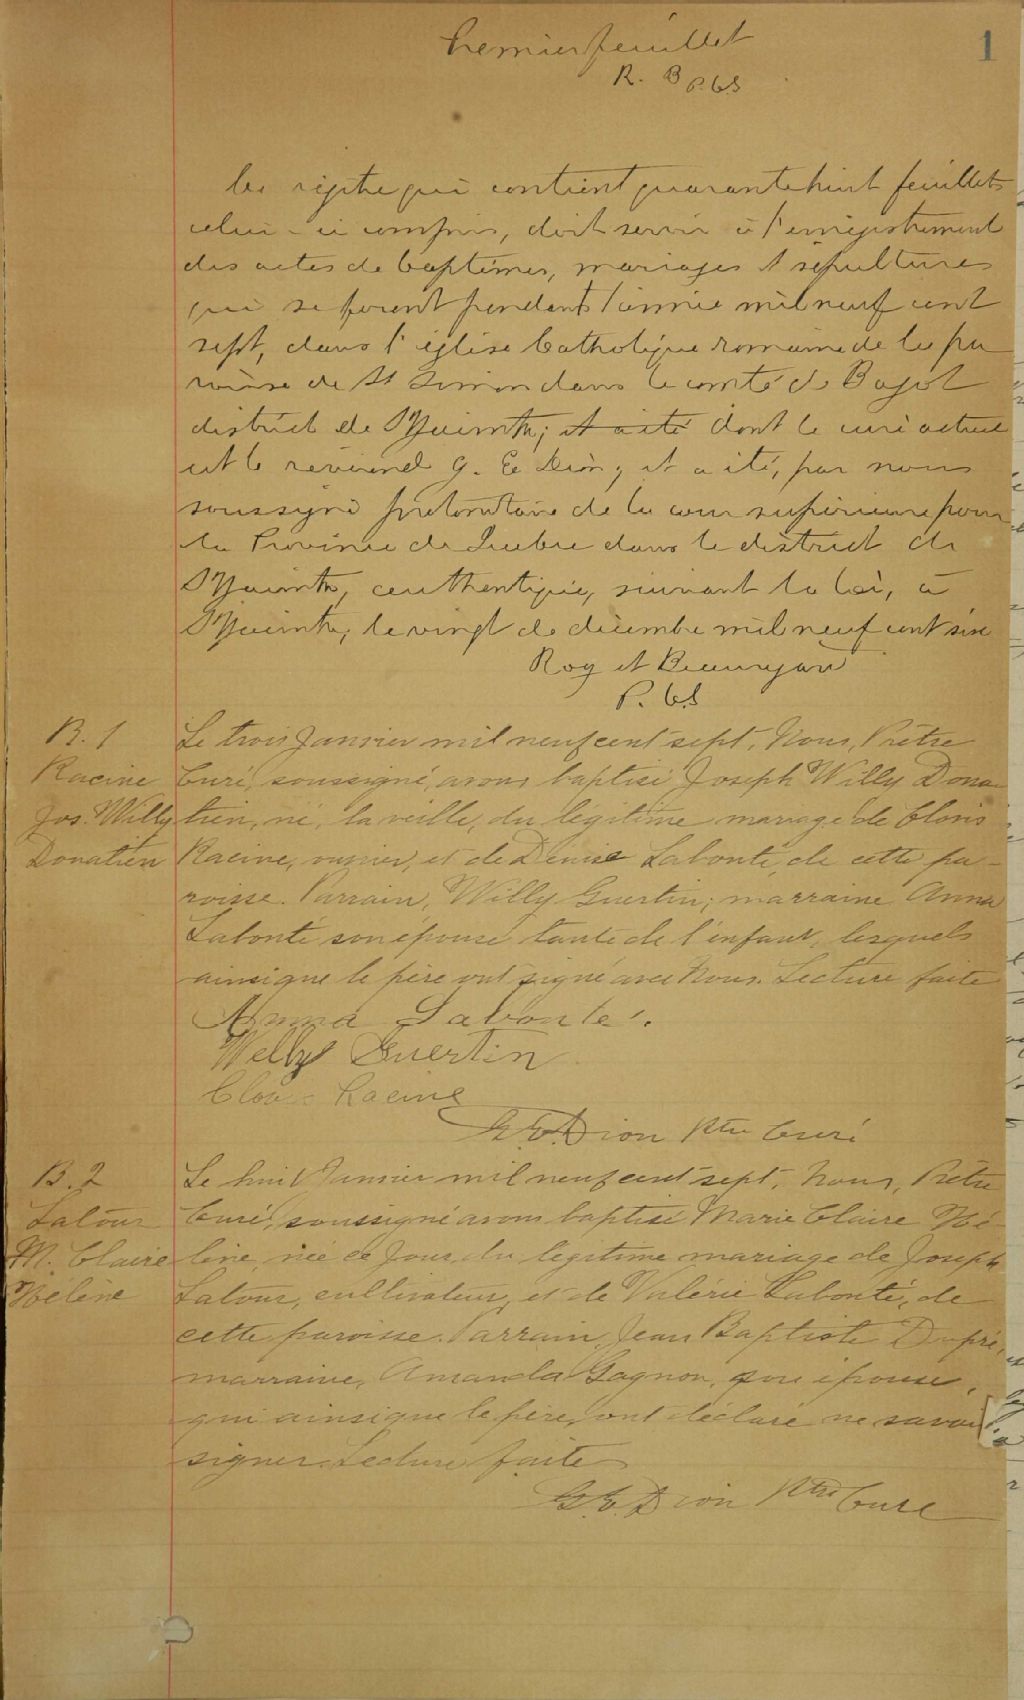 Premier feuillet
1
R. B P.C.S
Ce registre qui contient quarante huit feuillets
celui-ci compris, doit servir à l'enregistrement
des actes de baptêmes, mariages et sépultures
qui se feront pendant l'année mil neuf cent
sept, dans l'église Catholique romaine de la pa
roisse de St Simon dans le comté de Bagot
district de St Hyacinthe; et a été dont le curé actuel
est le révérend G. E Dion, et a été, par nous
soussigné protonotaire de la cour supérieure pour
la Province de Quebec dans le district de
St Hyacinthe, authentiqué, suivant la loi, à
St Hyacinthe, le vingt de décembre mil neuf cent six
Roy et Beauregard
P. C.S
B. 1
Racine
Jos. Willy
Donatien
Le trois Janvier mil neuf cent sept, Nous, Prêtre
Curé, soussigné, avons baptisé Joseph Willy Dona
tien, né, la veille, du légitime mariage de Clovis
Racine, ouvrier, et de Denise Labonté, de cette pa-
roisse. Parrain, Willy Guertin; marraine Anna
Labonté son épouse tante de l'enfant, lesquels
ainsi que le père ont signé avec Nous. Lecture faite
Anna Labonté.
Welly Guertin
Clovis Racine
G.E.Dion Ptre Curé
B. 2
Latour
M. Claire
Hélène
Le huit Janvier mil neuf cent sept, Nous, Prêtre
Curé, soussigné avons baptisé Marie Claire Hé-
lène, née ce jour, du légitime mariage de Joseph
Latour, cultivateur, et de Valérie Labonté, de
cette paroisse. Parrain, Jean Baptiste Dupré,
marraine, Amanda Gagnon, son épouse,
qui ainsi que le père, ont déclaré ne savoir
signer. Lecture faite
G.E.Dion Ptre Curé